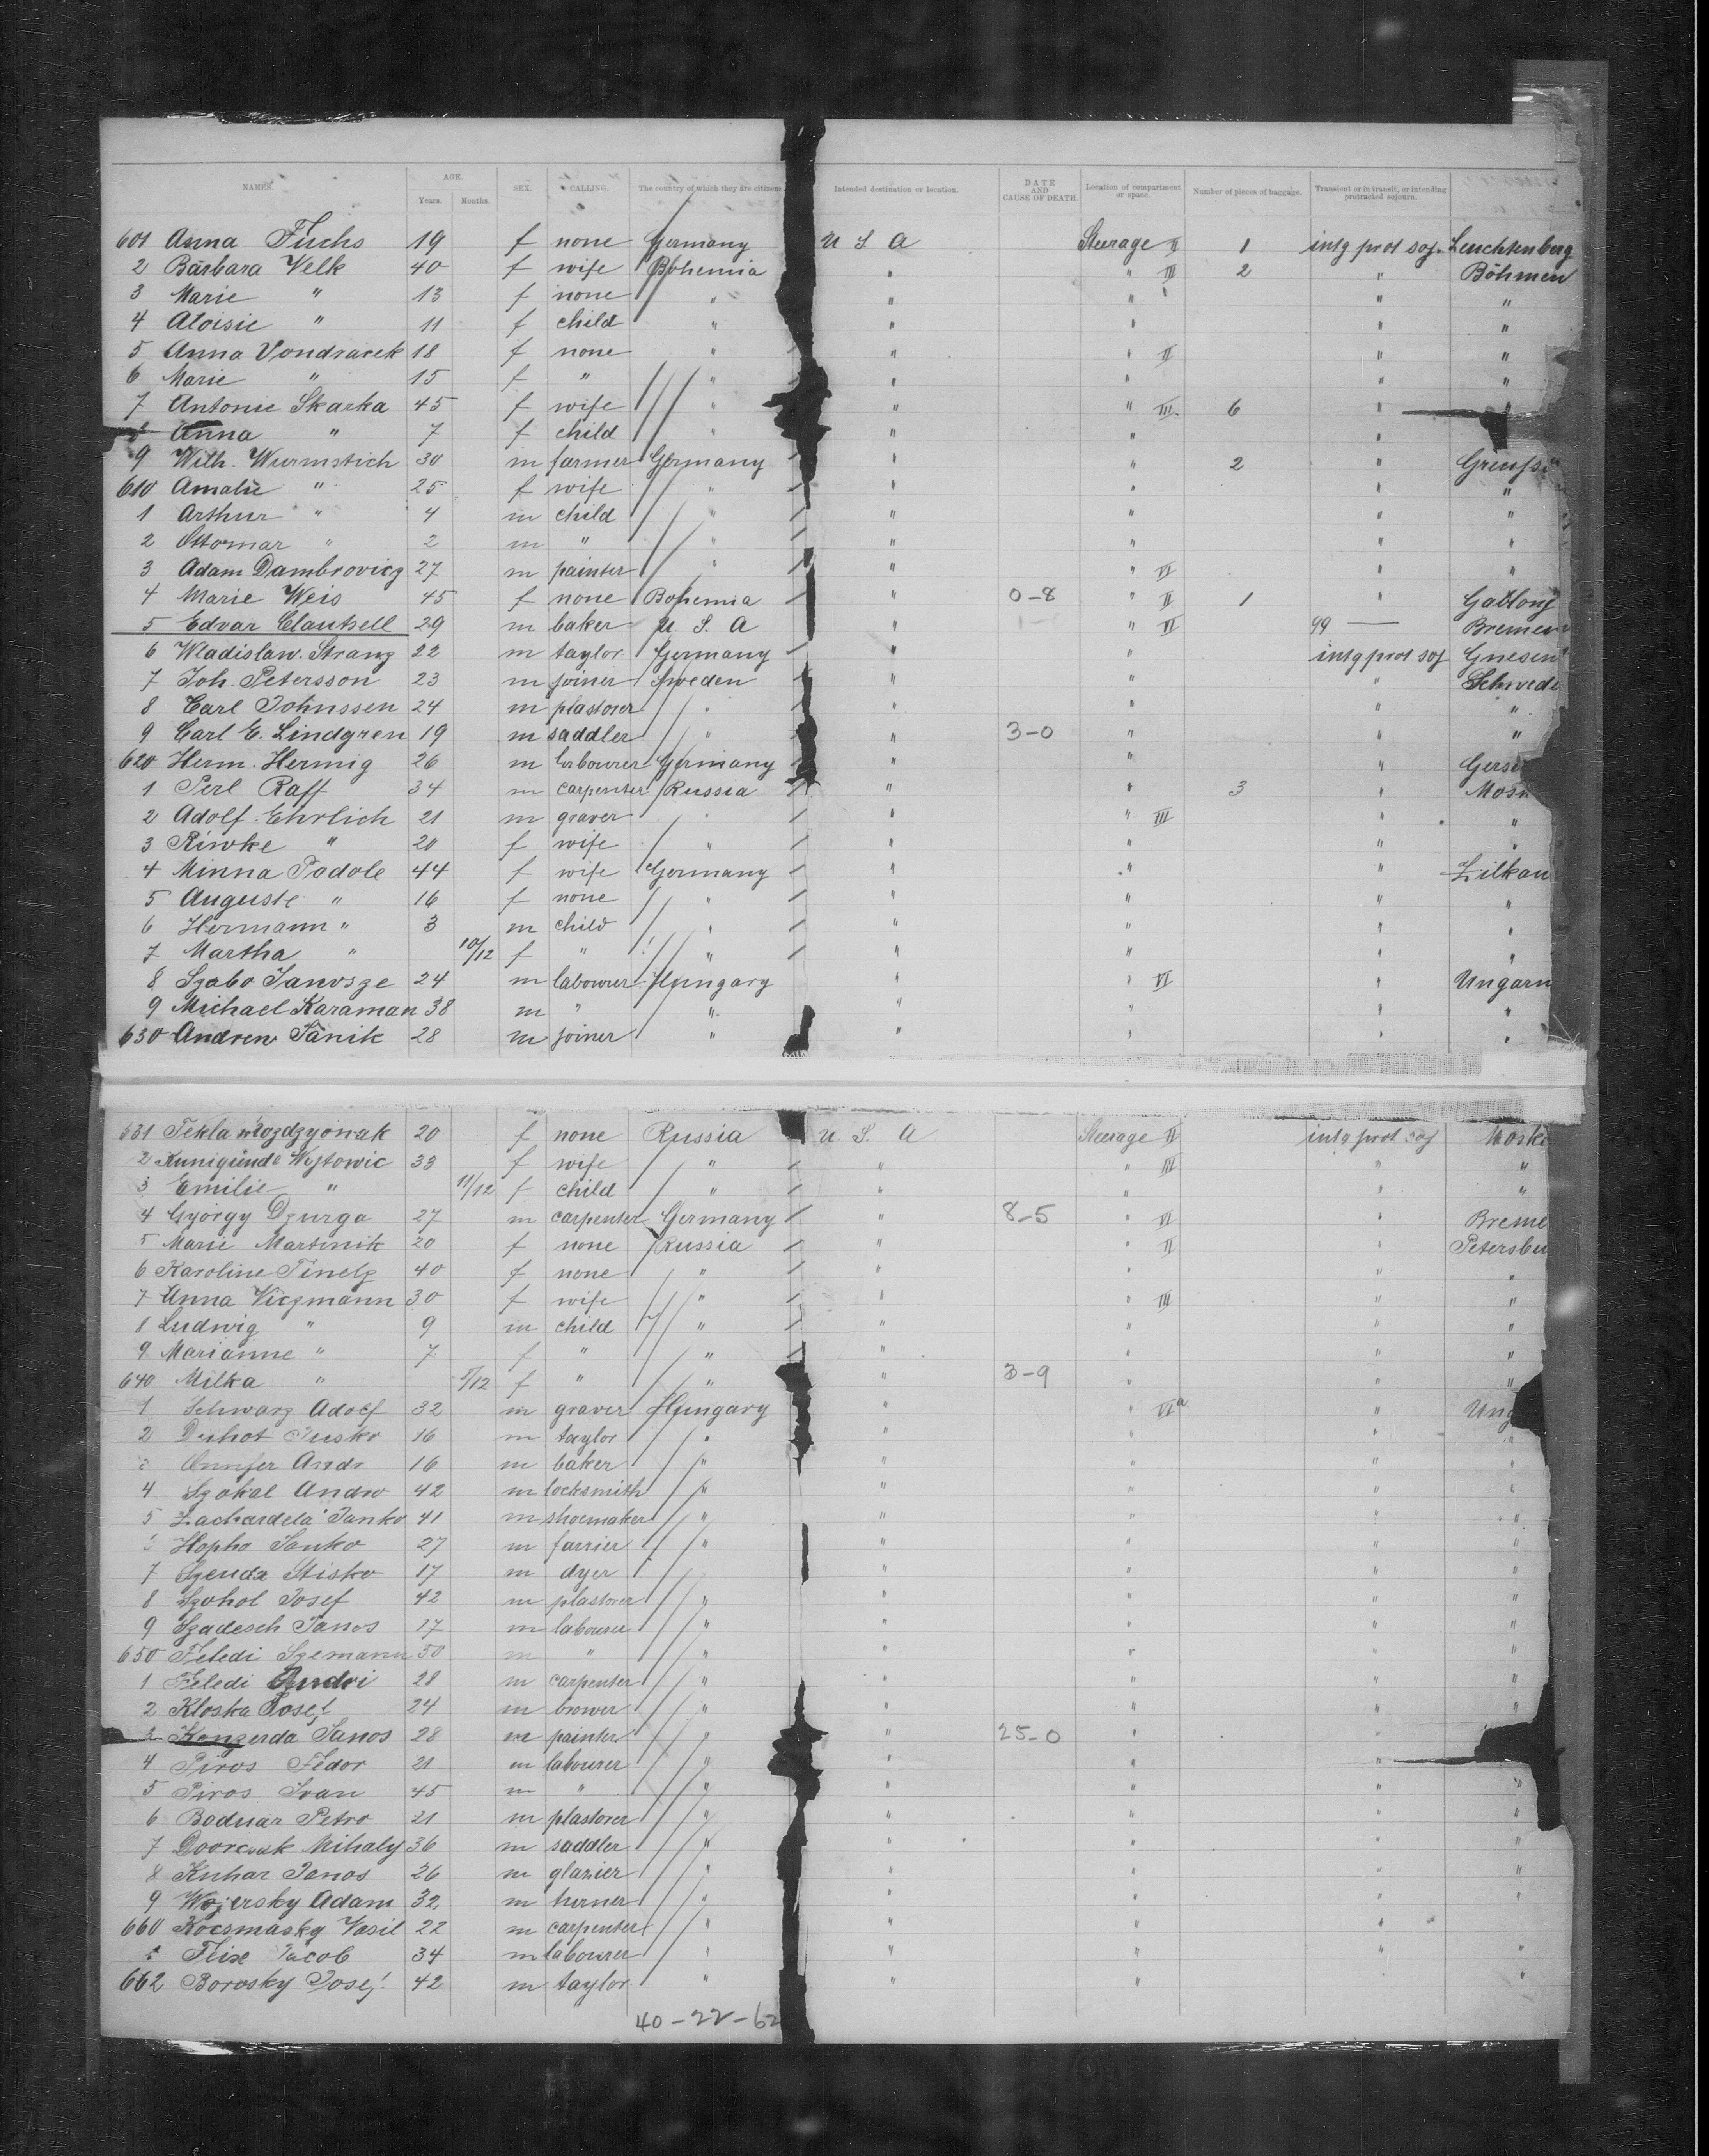 NAMES. AGE. Years. Months. SEX. CALLING. The country of which they are citizens Intended destination or location. DATE AND CAUSE OF DEATH. Location of compartment or space. Number of pieces of baggage. Transient or in transit, or intending protracted sojourn.
601 Anna Fuchs 19 f none Germany U S A Steerage II 1 intg prot soj. Leuchtenberg
2 Barbara Velk 40 f wife Bohemia " " III 2 " Böhmen
3 Marie " 13 f none " " " " "
4 Aloisie " 11 f child " " " " "
5 Anna Vondracek 18 f none " " " II " "
6 Marie " 15 f " " " " " "
7 Antonie Skarka 45 f wife " " " III 6 " "
8 Anna " 7 f child " " " "
9 Wilh. Wurmstich 30 m farmer Germany " " 2 "
610 Amalie " 25 f wife " " " " "
1 Arthur " 4 m child " " " " "
2 Ottomar " 2 m " " " " " "
3 Adam Dambrovicz 27 m painter " " " VI " "
4 Marie Weis 45 f none Bohemia " 0-8 " II 1 "
5 Edvar Clautsell 29 m baker U. S. A " " VI 99 — Bremen
6 Wladislaw. Stranz 22 m taylor Germany " " intg prot soj Gnesen
7 Joh. Petersson 23 m joiner Sweden " " " Schwede
8 Carl Johnssen 24 m plastorer " " " " "
9 Carl E. Lindgren 19 m saddler " " 3-0 " " "
620 Herm. Hermig 26 m labourer Germany " " "
1 Perl Raff 34 m carpenter Russia " " 3 "
2 Adolf Ehrlich 21 m graver " " " III " "
3 Riwke " 20 f wife " " " " "
4 Minna Podole 44 f wife Germany " " " Zilkau
5 Auguste " 16 f none " " " " "
6 Hermann " 3 m child " " " " "
7 Martha " 10/12 f " " " " " "
8 Szabo Janosze 24 m labourer Hungary " " VI " Ungarn
9 Michael Karaman 38 m " " " " " "
630 Andrew Janik 28 m joiner " " " " "
631 Tekla 20 f none Russia U. S. A Steerage II intg prot soj
2 Kunigunde Wojtowic 33 f wife " " " III " "
3 Emilie " 11/12 f child " " " " "
4 György Dzurga 27 m carpenter Germany " 8-5 " VI " Breme
5 Marie Martinik 20 f none Russia " " II " Petersbu
6 Karoline 40 f none " " " " "
7 Anna Viczmann 30 f wife " " " III " "
8 Ludwig " 9 m child " " " " "
9 Marianne " 7 f " " " " " "
640 Milka " 5/12 f " " " 3-9 " " "
1 Schwarz Adolf 32 m graver Hungary " " VIa " Ung
2 Duhot Jusko 16 m taylor " " " " "
16 m baker " " " " "
4 Szokal Andro 42 m locksmith " " " " "
5 Zachardela Janko 41 m shoemaker " " " " "
Hopho Janko 27 m farrier " " " " "
7 Szenda Stisko 17 m dyer " " " "
8 Szohol Josef 42 m plastorer " " " " "
9 Szadesch Janos 17 m labourer " " " " "
650 Feledi Szemann 50 m " " " " " "
1 Feledi Andri 28 m carpenter " " " " "
2 Kloska Josef 24 m brower " " " " "
3 Konzerda Janos 28 m painter " " 25-0 " "
4 Piros Fedor 21 m labourer " " " "
5 Piros Ivan 45 m " " " " " "
6 Bodnar Petro 21 m plastorer " " " " "
7 Mihaly 36 m saddler " " " " "
8 Kuhar Janos 26 m glazier " " " " "
9 Adam 32 m turner " " " " "
660 Kocsmasky Vasil 22 m carpenter " " " "
1 Feix Jacob 34 m labourer " " " " "
662 Borosky Josef 42 m taylor " " " "
40-22-62